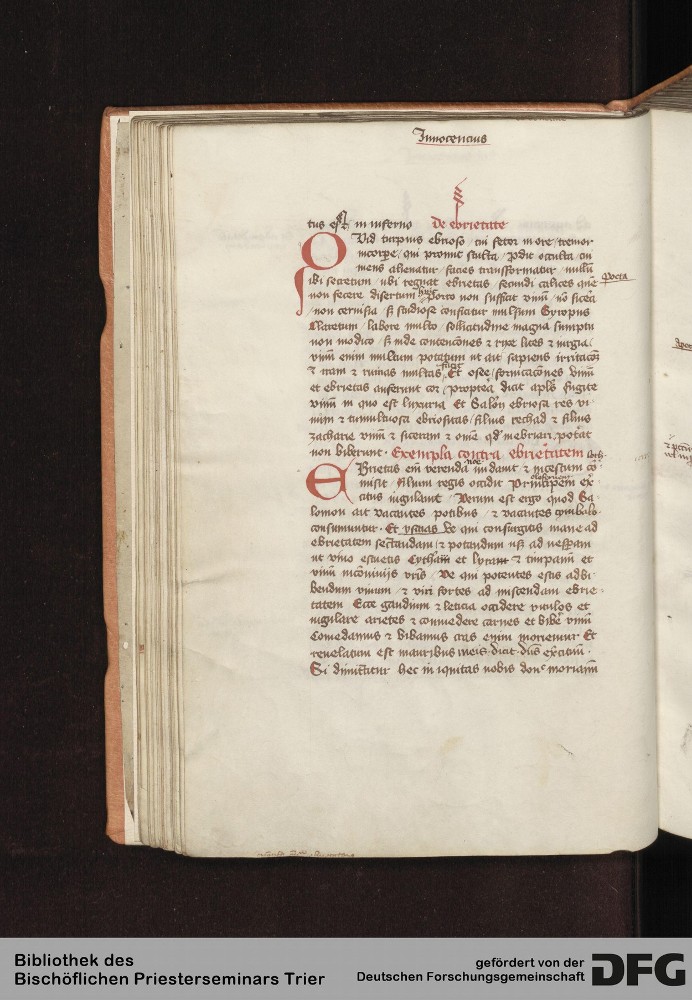 Innocencius
tus est in inferno de ebrietate
Quid turpius ebrioso / cui fetor in ore / tremor
in corpe / qui promit stulta / prodit occulta / cui
mens alienatur / facies transformatur / nullu
ibi secretum / ubi regnat ebrietas / fecundi calices que
Poeta
non fecere disertum Porro non sufficit vinu / no sicera
/ non cervisia / s studiose conficitur mulsum Syropus
Claretum / labore multo / sollicitudine magna sumptu
non modico / s inde contencones et rixe lites et iurgia /
vinu enim multum potatum ut ait sapiens irritacoe
et iram et ruinas multas facit Et osee / fornicacones vinu
et ebrietas auferunt cor / propterea dicit apls fugite
vinu in quo est luxuria Et Salon ebriosa res vi
num et tumultuosa ebriositas / filius rechab et filius
zacharie vinu et siceram et ome qd inebriari potat
non biberunt · Exempla contra ebrietatem
Ebrietas eni verenda noe nudavit et incestum co
misit / filium regis occidit / Principem exer
olofernem
citus iugulavit / Verum est ergo quod Sa
lomon ait vacantes potibus / et vacantes symbola
consumuntur · Et ysaias Ve qui consurgitis mane ad
ebrietatem sectandam / et potandum usq ad vesperam
ut vino estuetis Cythara et lyram et timpanu et
vinu in coviviis vris / Ve qui potentes estis ad bi
bendum vinum / et viri fortes ad miscendam ebrie
tatem Ecce gaudium et leticia occidere vitulos et
iugulare arietes et comedere carnes et bibe vinu
Comedamus et bibamus cras enim moriemur Et
revelatum est in auribus meis dicit dns exercituu ·
Si dimittetur hec iniquitas vobis donec moriamini
Bibliothek des
Bischöflichen Priesterseminars Trier
gefördert von der
Deutschen Forschungsgemeinschaft
DFG